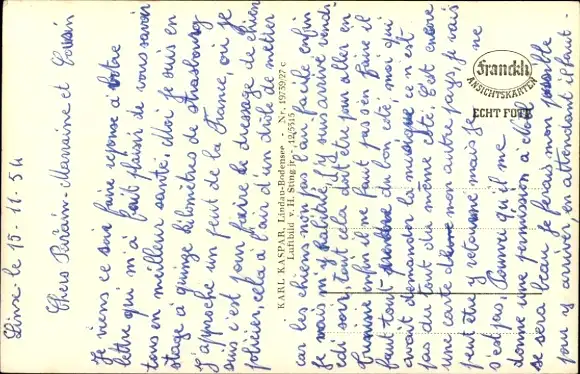 Lire le 15-11-54
Chers Parrain-Marraine et Cousin
Je viens ce soir faire réponse à votre
lettre qui m'a fait plaisir de vous savoir
tous en meilleur santé. Moi je suis en
stage à quinze kilomètres de strasbourg
J'approche un peut de la France, où je
suis c'est pour faire le dressage de chien
policier, cela à l'air d'un drôle de métier
car les chiens non pas l'air facile enfin
Je mais m'y habitué. J'y suis arrivé vendr-
edi soir, tout cela doit être pas aller en
enfin il ne faut pas s'en faire il
faut tout du bon côté, moi qui
avait demander la musique ce n'est
pas du tout du même côté. C'est encore
une carte d'un autre pays, je vais
peut être y retourné mais je ne
s'ect pas. Pourvu qu'il me
donne une permission à Noël
se sera beau je fais mon possible
pour y arriver en attendant il faut-
KARL KASPAR, Lindau-Bodensee - Nr. 19739/27 c
Luftbild v. H. Sting jr. 12/5315
Franckh
ANSICHTSKARTEN
ECHT FOTO